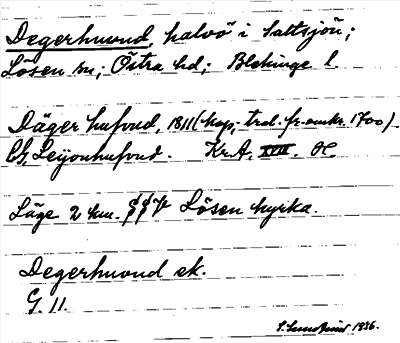 Degerhuvud, halvö i Saltsjön;
Lösen sn; Östra hd; Blekinge l.
Däger hufvud, 1811 (kop; trol. fr. omkr. 1700)
CG, Leijonhufvud. Kr.A. XVII. H.
Läge 2 km. Lösen kyrka.
Degerhuvud ek.
G. 11.
1936.